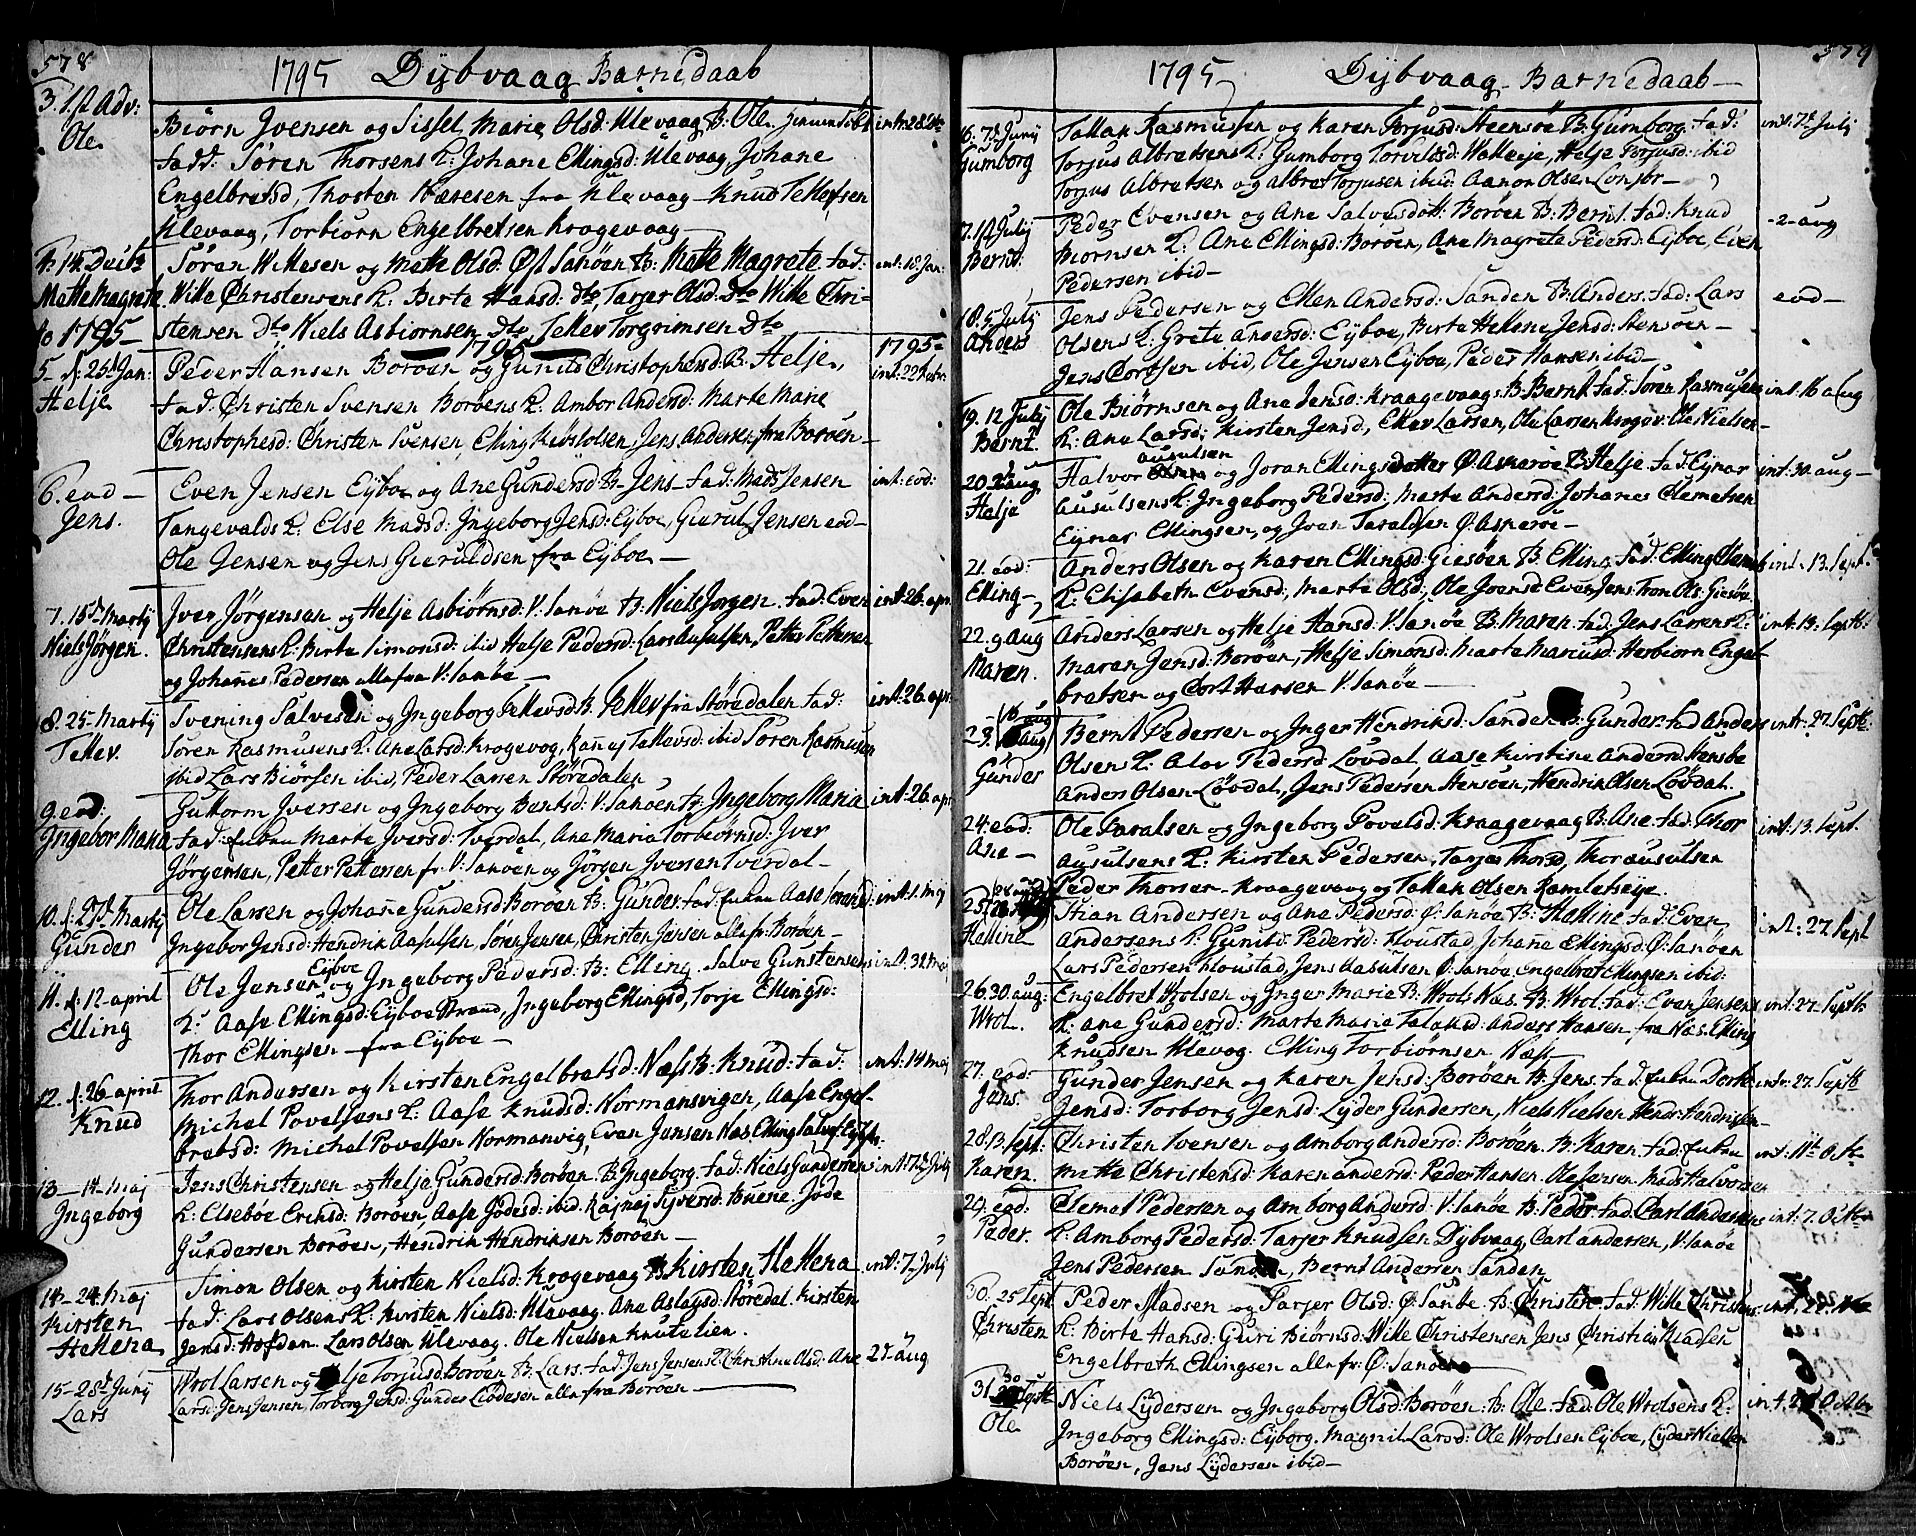 578
1795 Dybvaag Barnedaab
3. 1st Adv: Ole. Biørn Jvensen og Sissel Marie Olsd: Ulevaag B: Ole.
fadd: Søren Thorsens K: Johane Ellingsd: Ulevaag, Johane
Engelbretsd, Thosten fra Ulevaag Knud Tellefsen
Ulevaag, Torbiørn Engelbretsen Krogevaag
4. 14 Mette Magrete Søren Willesen og Mette Olsd: Øst Sanøen B: Mette Magrete fad: int: 18 Jan:
Wille Christensens K: Birte Hansd: dto, Tarjer Olsd: dto Wille Chri-
stensen dto Niels Asbiørnsen dto Tellev Torgrimsen dto
1795
1795
5- d: 25 Jan: Helje Peder Hansen Borøen og Gunild Christophersd: B: Helje, int: 22 Febr:
fad: Christen Svensen Borøens K: Ambor Andersd: Marte Marie
Christophersd: Christen Svensen, Elling Jens Andersen fra Borøen
6. eod Jens. Even Jensen Eyboe og Ane Gundersd B- Jens- fad: Mads Jensen int: eod:
Tangevalds K: Else Madsd: Ingeborg Jensd: Eyboe, Jensen eod-
Ole Jensen og Jens Gieruldsen fra Eyboe-
7. 15 Martij Niels Jørgen. Jver Jørgensen og Helje Asbiørnsd: V: Sanøe B: Niels Jørgen. fad: Even int: 26. apr.
Christensens K: Birte Simonsd: ibid Helje Pedersd: Lars Ausulsen, Petter Pettersen
og Johannes Pedersen alle fra V: Sanøe-
8. 25- Martij Tellev. Svening Salvesen og Ingeborg Tellevsd B. Tellev fra Størdalen fad: int: 26. apr:
Søren Rasmusens K: Ane Larsd: Krogevog, Tellevsd: ibid Søren Rasmusen
ibid Lars Biørsen ibid, Peder Larsen Størdalen
9. eod: Ingebor Maria Guttorm Jversen og Ingeborg Bentsd: V: Sanøen B: Ingeborg Maria int: 26. apr
fad: Marte Jversd: Tverdal, Ane Maria Torbiørnsd: Jver
Jørgensen, Petter Pettersen fr: V: Sanøen og Jørgen Jversen Tverdal-
10. Martij Gunder Ole Larsen og Johanne Gundersd Borøen B: Gunder fad: Aase int: 1. Maj
Ingebor Jensd: Hendrik Aasulsen, Søren Jensen, Christen Jensen alle fr: Borøen-
11. d: 12- april Elling Ole Jensen Eyboe og Ingeborg Pedersd: B: Elling. Salve Gunstensens int: 31. Maj
K: Aase Ellingsd: Eyboe Strand, Ingeborg Ellingsd, Torje Ellingsd:
Thor Ellingsen- fra Eyboe-
12. d: 26. april Knud Thor Andersen og Kirsten Engelbretsd: Næss B: Knud: fad: int: 14 Maj
Michel Povelsens K: Aase Knudsd: Normansvigen, Aase Engel-
bretsd: Michel Povelsen Normanvig, Even Jensen Næs Elling
13- 14. Maj Ingeborg Jens Christensen og Helje Gundersd Borøen. B. Ingeborg. fad: Niels Gundersen int: 7 July
K: Elseboe Eriksd: Borøen, Aase Jodesd: ibid. Syversd: Buene. Jode
Gundersen Borøen, Hendrik Hendriksen Borøen-
14- 24. Maj Kirsten Hellena Simon Olsen og Kirsten Nielsd: Krogevaag B Kirsten Hellena int: 7- July
fad: Lars Olsens K: Kirsten Nielsd: Ulevaag. Ane Aslagsd: Størdal. Kirsten
Jensd: Lars Olsen Ulevaag. Ole Nielsen Knutelien.
15- 28 Junij Lars Wrol Larsen og Helje Torjusd: Borøen B: Lars. fad: Jens Jensens K: Christine Olsd: Ane 2d. aug
Larsd: Jens Jensen, Torborg Jensd: Gunder alle fra Borøen
579
1795 Dybvaag- Barnedaab-
16. 7d Junij Gumborg Tallak Rasmussen og Karen Torjusd: Steensøe B: Gumborg. fad: int: 7d July
Torjus Albretsens K: Gumborg Torvildsd: Walleye, Helje Torjusd: ibid
Torjus Albretsen og Albret Torjusen ibid: Aanon Olsen
17. 1d July Bernt Peder Evensen og Ane Salvesdott: Borøen B: Bernt. fad: Knud -2- aug
Biørnsen K: Ane Ellingsd: Borøen, Ane Magrete Pedersd: Eyboe, Even
Pedersen ibid-
18. 5. July Anders Jens Pedersen og Ellen Andersd: Sanden B: Anders: fad: Lars eod-
Olsens K: Grete Andersd: Eyboe, Birte Hellene Jensd: Stensøen-
Jens Cortsen ibid, Ole Jensen Eyboe, Peder Hansen ibid-
19. 12 July Bernt Ole Biørnsen og Ane Jensd: Kraagevaag: B: Bernt fad: Søren Rasmusens int: 16 aug
K: Ane Larsd: Kirsten Jensd, Ellev Larsen, Ole Larsen Krogev: Ole Nielsen-
20. 2 aug Helje Halvor Ausulsen og Joran Ellingsdatter Ø: Askerøe B: Helje fad: Eynar int: 30. aug-
Ausulsens K: Ingeborg Pedersd: Marte Andersd: Johanes Clemetsen
Eynar Ellingsen, og Jver Taraldsen Ø: Askerøe-
21. eod: Elling- Anders Olsen og Karen Ellingsd: Giesøen B: Elling, fad: Elling int. 13. Sept.
K: Elisabeth Evensd, Marte Olsd:, Ole Even Jens: Tron Ols: Giesøe
22. 9 aug Maren. Anders Larsen og Helje Hansd: V: Sanøe B: Maren. fad: Jens Larsens K: int: 13. Septb:
Maren Jensd: Borøen, Helje Simonsd: Marte Mariusd: Herbiørn Engel-
bretsen og Cort Hansen V: Sanøe-
23. (16 aug) Gunder Bernt Pedersen og Inger Hendriksd: Sanden B: Gunder- fad Anders int: 27 Septb:
Olsens K: Alov Pedersd: Løvdal, Aase Kirstine Andersd: Hensøe
Anders Olsen Løvdal, Jens Pedersen Hensøen, Hendrik Olsen Løvdal.
24. eod: Ane- Ole Taralsen og Ingeborg Povelsd: Kraagevaag B: Ane- fad: Thor int: 13. Sept.
Ausulsens K: Kirsten Pedersen, Tarjer Thorsd, Thor Ausulsen
Peder Thorsen- Kraagevaag og Tallak Olsen Ramletseye.
25. Helline Stian Andersen og Ane Pedersd: Ø: Sanøe B: Helline fad: Even int: 27 Sept
Andersens K: Gunild: Pedersd: Floustad, Johanne Ellingsd: Ø: Sanøen
Lars Pedersen Floustad, Jens Aasulsen Ø: Sanøe Engelbret Ellingsen ibid:
26. 30. aug: Wrol. Engelbret Wrolsen og Inger Marie B: Wrols Næs. B: Wrol. fad: Even Jensens int: 27- Septb:
K: Ane Gundersd: Marte Marie Anders Hansen fra Næs. Elling
Knudsen Ulevog. Elling Torbiørnsen Næss
27. eod: Jens. Gunder Jensen og Karen Jensd: Borøen B. Jens. fad: int: 27. Septb
Jensd: Torborg Jensd: Lyder Gundersen, Niels Nielsen Hendr: Hendriksen
28. 13. Sept: Karen. Christen Svensen og Amborg Andersd: Borøen. B: Karen fad: int: 11t Octb
Mette Christensd: Karen Andersd: Peder Hansen. Ole Jensen Mads Halvorsen
29. eod: Peder. Clemet Pedersen og Amborg Andersd: V: Sanøe B: Peder fad: Carl Andersens int: 7. Octb
K: Amborg Pedersd: Tarjer Knudsen Dybvaag, Carl Andersen, V: Sanøe
Jens Pedersen Sanden, Bernt Andersen Sanden
30. 25 Sept Christen Peder Madsen og Tarjer Olsd: Ø: Sanøe B: Christen. fad: Wille Christens. int.
K: Birte Hansd: Guri Biørnsd: Wille Christensen Jens Christian Kladsen
Engelbreth Ellingsen alle fr: Ø: Sanøe
31. Ole Niels Lydersen og Ingeborg Olsd: Borøen: B: Ole. fad: Ole Wrolsens K. int.
Ingeborg Ellingsd: Eyborg. Magnil Larsd: Ole Wrolsen Eyboe, Lyder Nielsen
Borøen, Jens Lydersen ibid-